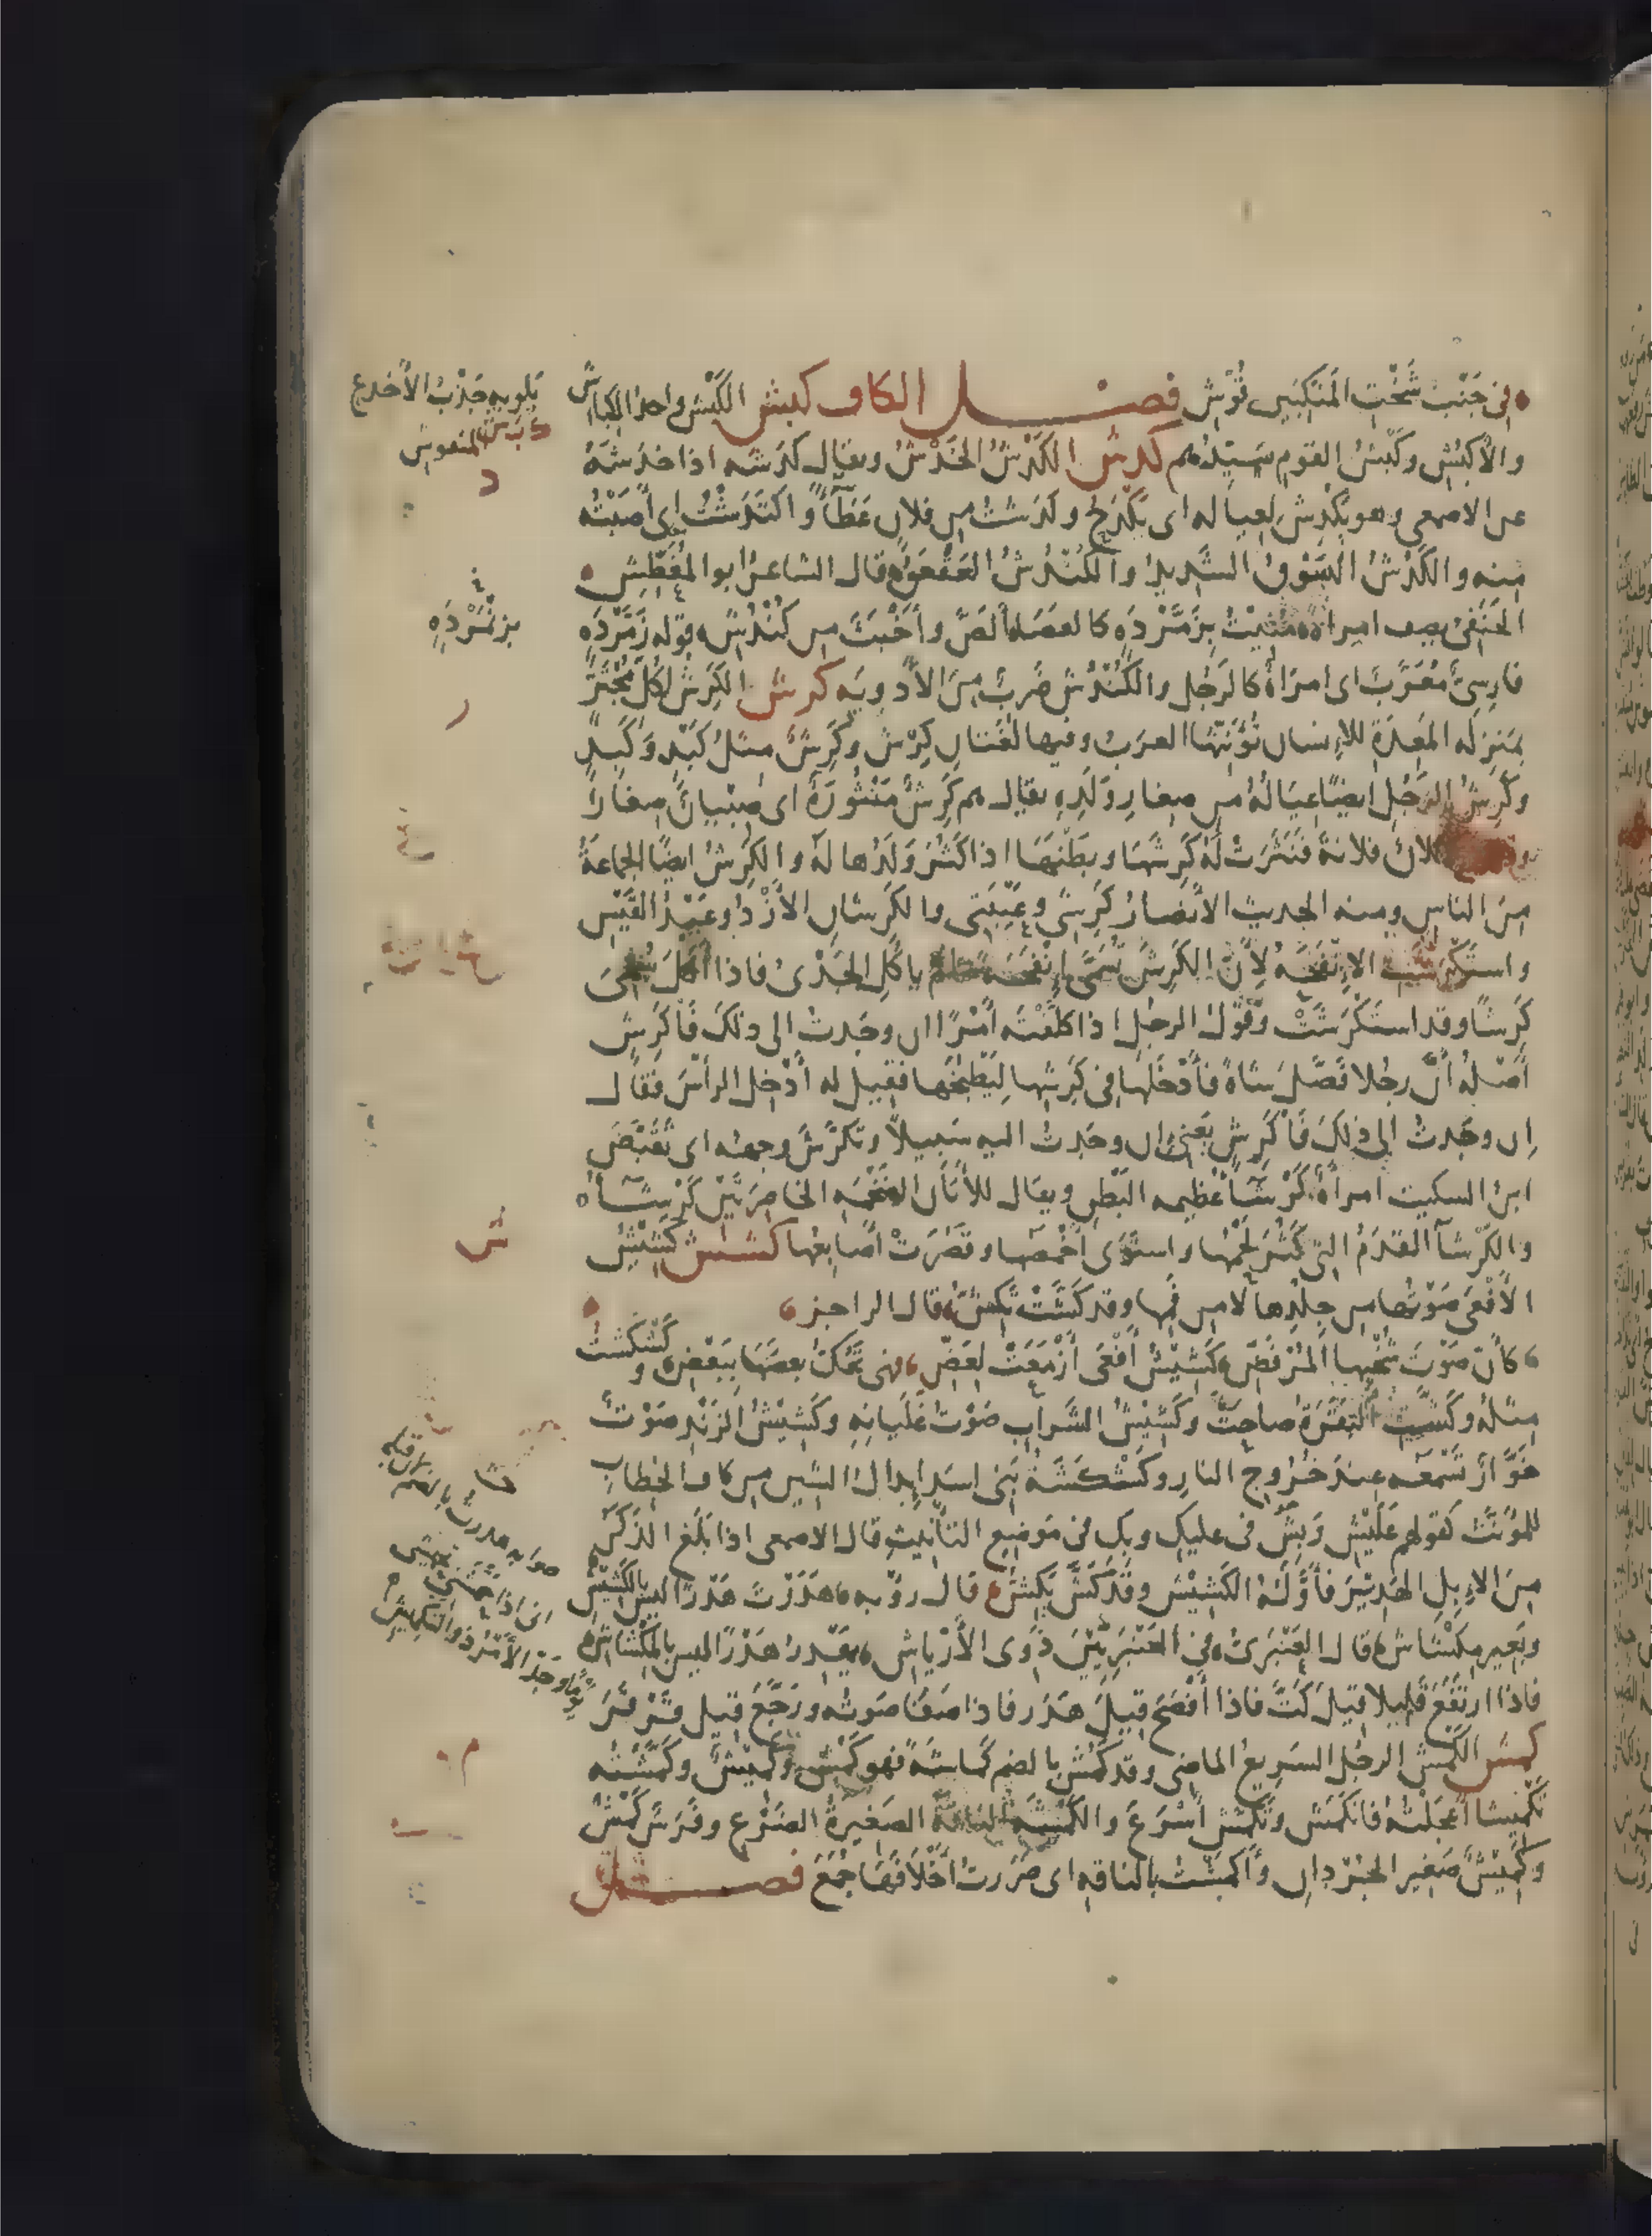 في جَنْبٍ شَخْتِ المَنكِبَينِ قُوْشِ فصل الكاف كبش الكَبْش واحد الكِبَاش
والأَكْبُش وكَبْشُ القومِ سَيّدُهم كدش الكَدْشُ الخَدْشُ ويقال كدَشَه اذا خدَشَهُ
عن الاصمعي وهو يَكْدِشُ لعياله اى يَكْدَحُ وكدَشْتُ من فلانٍ عَطَآءً واكتَدَشْتُ اى أَصَبْتُ
منه والكَدْشُ السَّوْقُ الشديدُ والكُنْدُشُ العَقْعَقُ قال الشاعرُ ابو المُغَطّش
الحَنَفيّ يصف امراةً مُنِيْتُ بِزَمَّرْدَه كالعصَا أَلَصَّ وأَخْبَثَ من كُنْدُشِ قوله زَمَّرْدَه
فارسيٌّ مُعَرَّبٌ اى امرَاةٌ كالرَجُل والكُنْدُشُ ضَربٌ مِنَ الأَدويَه كرش الكَرِشُ لكل مُجْتَرٍّ
بمنزله المَعِدَةِ للإنسان تُؤنّثها العرَبُ وفيها لُغَتان كِرْشٌ وكَرِشٌ مثلُ كِبْدٍ وكَبِدٍ
وكَرِشُ الرَجُلِ ايضًا عيَالُهُ من صِغارِ وَلَدِه يقال هم كَرِشٌ مَنْثُورَةٌ اى صِبْيانٌ صِغارٌ
فلانٌ فلانةً فنَثَرَتْ لَهُ كَرِشَهَا وبطْنَهَا اذا كَثُرَ وَلَدُها لَهُ والكَرِشُ ايضًا الجماعةُ
مِنَ الناسِ ومنه الحديث الأَنصَارُ كَرِشِي وعَيْبَتِي والكَرِشان الأَزْدُ وعَبْدُ القَيْسِ
واستكْرَشَتِ الإنْفَحَه لأنّ الكَرِشَ تُسَمَّى إِنْفَحَه مالم ياكُلِ الجَدْىُ فاذا أَكَلَ تُسمَّى
كَرِشًا وقد استَكْرَشَتْ وقَوْلُ الرجل اذا كلّفْتَه أَمْرًا ان وجَدتُ الى ذلك فَاكَرِشٍ
أَصْلُهُ أَنَّ رجُلا فَصَّلَ شاةً فأَدْخَلَها في كَرِشِها لِيَطْبُخَها فقيل له أَدْخِلِ الرأسَ فقال
إن وجَدتُ الى ذلك فَاكَرِشٍ يَعْني ان وجَدتُ اليه سَبيلاً وتَكَرَّشَ وجهُه اى تَقَبَّضَ
ابن السكيت امرأةٌ كَرْشَآءُ عظيمه البَطْنِ ويقال للأَتَان الضخمه الخاصرتَيْن كَرْشَآءُ
والكَرْشَآءُ القدَمُ التي كَثُرَ لَحْمُها واستَوَى أَخْمَصُها وقَصُرَتْ أَصابِعُها كشش كَشِيْشُ
الأَفْعَى صَوْتُها من جِلْدِها لا من فمِها وقد كَشَّتْ تَكِشُّ قال الراجز
كأنّ صَوْتَ شُخْبِها المُرْفَضِّ كَشِيْشُ أَفْعَى أَزْمَعَتْ لعَضِّ فهي تَحُكُّ بعضَهَا ببَعْضِ و كَشْكَشَتْ
مثلُه وكَشَّتِ البَقَرَةُ صاحت وكَشِيْشُ الشَّرابِ صَوْتُ غَلَيانِه وكَشِيْشُ الزَنْدِ صَوْتٌ
خَوَّارٌ تَسْمَعُه عِندَ خُرُوجِ النارِ وكَشْكَشَةُ بَنِي اسَد إبدالُ الشين من كاف الخطابِ
للمؤنّث كقولهم عَلَيْشِ وبِشِ في عليكِ وبكِ في مَوضِع التأنيثِ قال الاصمعي اذا بَلَغَ الذَكَرُ
مِنَ الإبلِ الهَدِيرَ فأَوَّلُهُ الكَشِيْش وقد كَشَّ يَكِشُّ قال روبه هَدَرْتُ هَدْرًا ليسَ بالكَشِيْشِ
وبَعير مِكْشَاش قال العَنْبَرِىّ في العَنْبَرِيّيْنَ ذَوى الأَرْياشِ يَهْدِرُ هَدْرًا ليس بالمِكْشَاشِ
فاذا ارتفَعَ قليلا قيل كَتَّ فاذا أَفْصَحَ قيل هَدَرَ فاذا صَفَا صَوتُه ورَجَّعَ قيل قَرْقَرَ
كمش الكَمْش الرجُل السَرِيعُ الماضي وقد كَمُشَ بالضم كمَاشَةً فهو كَمْش وكَمِيْش وكَمَّشْتُه
تَكْمِيشا أَعْجَلْتُه فانكَمَش وتكَمَّش أَسْرَعَ والكَمْشَة الناقةُ الصَغِيرةُ الضَرْع وفَرَس كَمْشٌ
وكَمِيْشٌ صَغِير الجُرْدان وأَكمَشْتُ بالناقه اى صَرَرتُ أَخْلافَها جُمَعَ فصل
يَلْويهِ جَذْبُ الأَخدع
د
بزِنْمَرْدَه
ر
ش